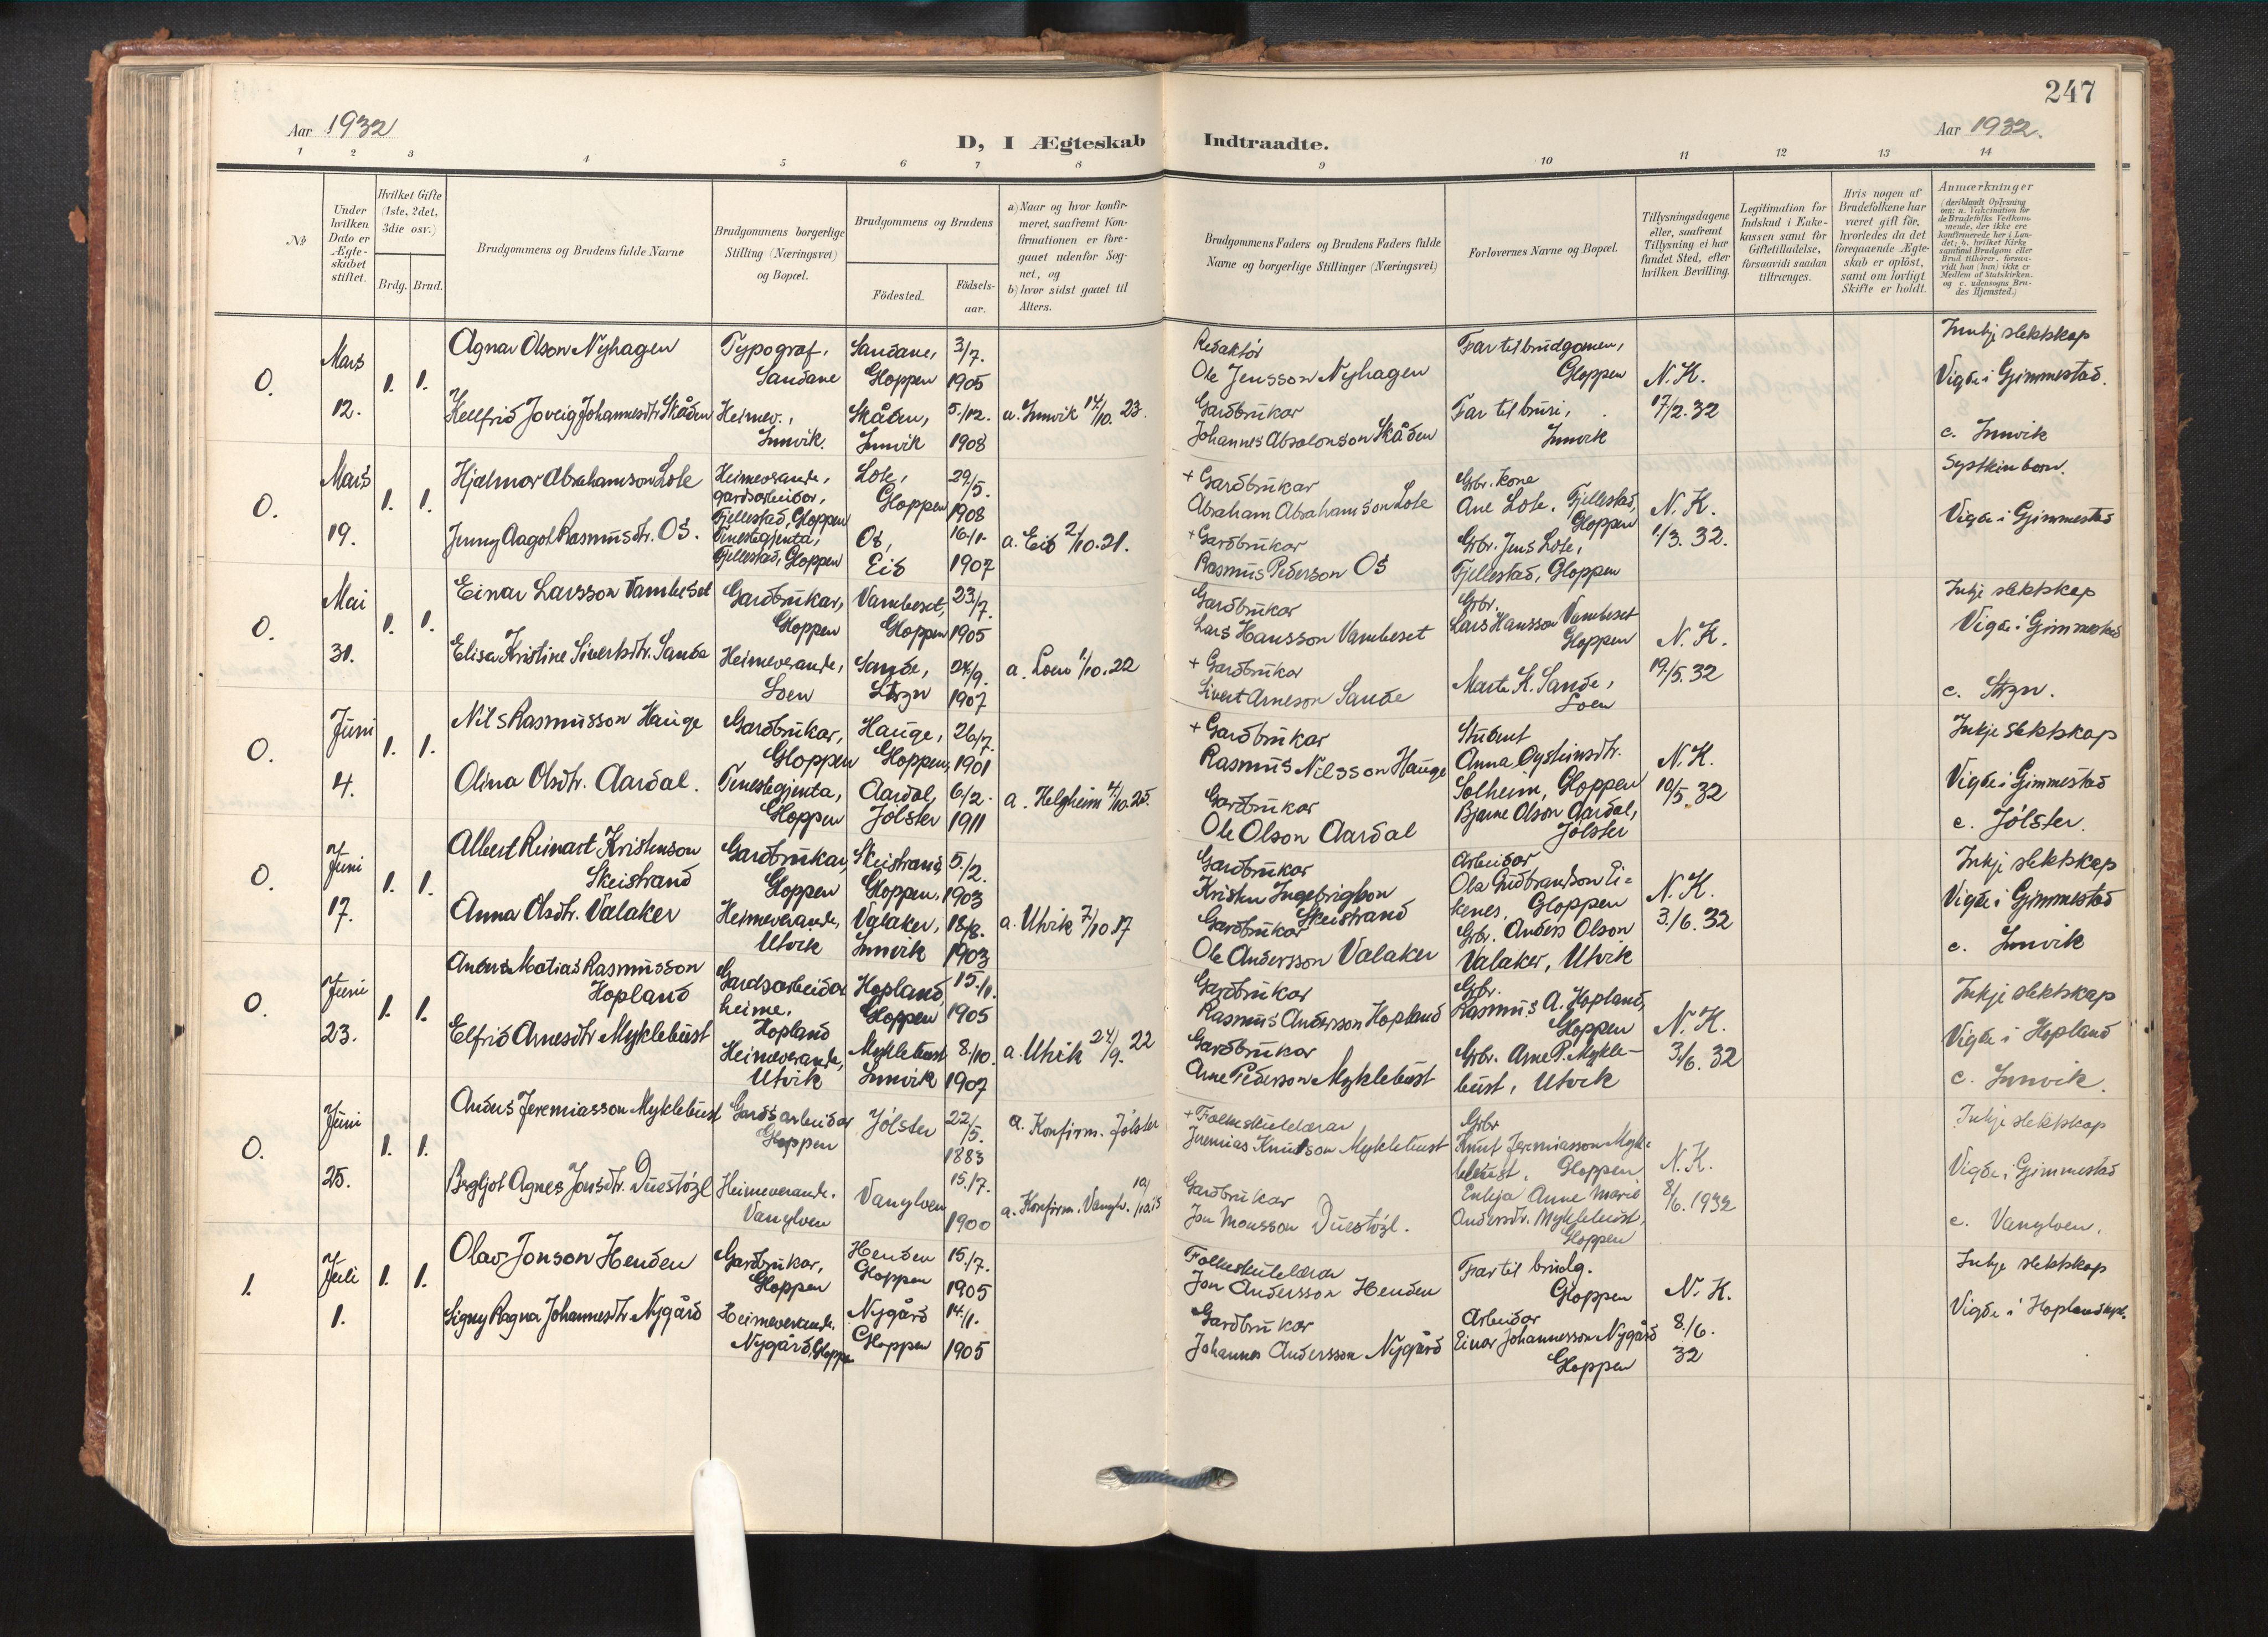 247
Aar 1932
D, I Ægteskab Indtraadte.
Aar 1932.
1 2 3 4 5 6 7 8 9 10 11 12 13 14
No
Under hvilken Dato er Ægteskabet stiftet.
Hvilket Gifte (1ste, 2det, 3die osv.)
Brdg. Brud.
Brudgommens og Brudens fulde Navne
Brudgommens borgerlige Stilling (Næringsvei) og Bopæl.
Brudgommens og Brudens
Födested.
Födselsaar.
a) Naar og hvor konfirmeret, saafremt Konfirmationen er foregaaet udenfor Sognet, og
b) hvor sidst gaaet til Alters.
Brudgommens Faders og Brudens Faders fulde Navne og borgerlige Stillinger (Næringsvei)
Forlovernes Navne og Bopæl.
Tillysningsdagene eller, saafremt Tillysning ei har fundet Sted, efter hvilken Bevilling.
Legitimation for Indskud i Enkekassen samt for Giftetilladelse, forsaavidt saadan tiltrænges.
Hvis nogen af Brudefolkene har været gift för, hvorledes da det foregaaende Ægteskab er oplöst, samt om lovligt Skifte er holdt.
Anmærkninger
(deriblandt Oplysning om: a. Vakcination for de Brudefolks Vedkommende, der ikke ere konfirmerede her i Landet; b. hvilket Kirkesamfund Brudgom eller Brud tilhörer, forsaavidt han (hun) ikke er Medlem af Statskirken, og c. udensogns Brudes Hjemsted.)
0. Mars 12. 1. 1.
Agnar Olson Nyhagen
Typograf, Sandane
Sandane, Gloppen
3/7. 1905
Redaktør
Ole Jensson Nyhagen
Far til brudgomen, Gloppen
N. K. 17/2. 32
Innkje slektskap
Vigde i Gjimmestad.
Johannesdtr. Skåden
Heimev., Innvik.
Skåden, Innvik
5./12. 1908
a. Innvik 14/10. 23.
Gardbrukar
Johannes Absalonson Skåden
Far til bruri, Innvik
c. Innvik
0. Mars 19. 1. 1.
Hjalmar Abrahamson Lote
Heimeverande, gardsarbeidar, Fjellestad, Gloppen
Lote, Gloppen
29/5. 1908
+ Gardbrukar
Abraham Abrahamson Lote
Grbr. kone
Ane Lote, Fjellestad, Gloppen
N. K. 1/3. 32.
Systkinborn.
Vigde i Gjimmestad
Jenny Aagot Rasmusdtr. Os.
Tenestegjenta, Fjellestad, Gloppen
Os, Eid
16/1. 1907
a. Eid 2/10. 21.
+ Gardbrukar
Rasmus Pederson Os
Grbr. Jens Lote, Fjellestad, Gloppen
0. Mai 31. 1. 1.
Einar Larsson Vambeset
Gardbrukar, Gloppen
Vambeset, Gloppen
23/7. 1905
Gardbrukar
Lars Hansson Vambeset
Grbr.
Lars Hansson Vambeset
Gloppen
N. K. 19/5. 32
Inkje slektskap
Vigde i Gjimmestad
Elisa Kristine Sivertsdtr. Sande
Heimeverande, Loen
Sande, Stryn
24/9. 1907
a. Loen 1/10. 22
+ Gardbrukar
Sivert Arneson Sande
Marte K. Sande, Loen
c. Stryn.
0. Juni 4. 1. 1.
Nils Rasmusson Hauge
Gardbrukar, Gloppen
Hauge, Gloppen,
26/7. 1901
+ Gardbrukar
Rasmus Nilsson Hauge
Student
Anna Oysteinsdtr. Solheim, Gloppen
N. K. 19/5. 32
Inkje slektskap
Vigde i Gjimmestad
Olina Olsdtr. Aardal.
Tenestegjenta, Gloppen
Aardal, Jölster
6/2. 1911
a. Helgheim 4/10. 25.
Gardbrukar
Ole Olson Aardal
Bjarne Olson Aardal, Jölster
c. Jölster.
0. Juni 17. 1. 1.
Albert Reinart Kristenson Skeistrand
Gardbrukar, Gloppen
Skeistrand, Gloppen,
5./2. 1903
Gardbrukar
Kristen Ingebrigtson Skeistrand
Arbeidar
Ola Gudbrandson Eikenes, Gloppen
N. K. 3./6. 32
Inkje slektskap
Vigde i Gjimmestad
Anna Olsdtr. Valaker
Heimeverande, Utvik
Valaker, Innvik
18/8. 1903
a. Utvik 7/10 17
Gardbrukar
Ole Andersson Valaker
Grbr. Anders Olson Valaker, Utvik
c. Innvik
0. Juni 23. 1. 1.
Anders Matias Rasmusson Hopland
Gardsarbeidar heime, Hopland
Hopland, Gloppen
15./1. 1905
Gardbrukar
Rasmus Andersson Hopland
Grbr.
Rasmus A. Hopland, Gloppen
N. K. 3./6. 32
Inkje slektskap
Vigde i Hopland
Elfrid Arnesdtr Myklebust
Heimeverande, Utvik
Myklebust, Innvik
8./10. 1907
a. Utvik 24/9. 22
Gardbrukar
Arne Pederson Myklebust
Grbr. Arne P. Myklebust, Utvik
c. Innvik.
0. Juni 25. 1. 1.
Anders Jeremiasson Myklebust
Gardsarbeidar Gloppen
Jölster
22/5. 1883
a. Konfirm. Jölster
+ Folkeskulelærar
Jeremias Knutson Myklebust
Grbr
Knut Jeremiasson Myklebust, Gloppen
N. K. 8/6. 1932
Inkje slektskap
Vigde i Gjimmestad
Bergljot Agnes Jonsdtr. Duestöyl
Heimeverande. Vanylven
Vanylven
15./7. 1900
a. Konfirm. Vanylv. 10/10.15
Gardbrukar
Jon Monsson Duestöyl.
Enkja Anne Marie Andersdr. Myklebust, Gloppen
c. Vanylven.
1. Juli 1. 1. 1.
Olav Jonson Henden
Gardbrukar, Gloppen
Henden Gloppen
15./7. 1905
Folkeskulelærar
Jon Andersson Henden
Far til brudg. Gloppen
N. K. 8./6. 32
Inkje slektskap
Vigde i Hopland kpl.
Signy Ragna Johannesdtr Nygård
Heimeverande. Nygård, Gloppen
Nygård Gloppen
14./1. 1905
Gardbrukar
Johannes Andersson Nygård
Arbeidar
Einar Johannesson Nygård
Gloppen